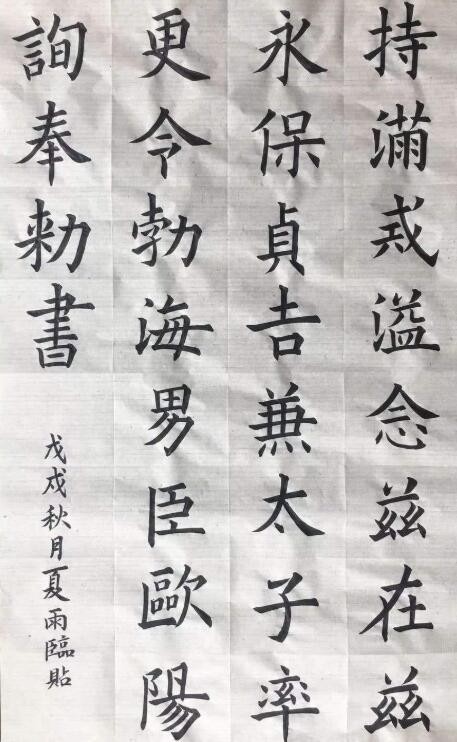 持滿戒溢念茲在茲
永保貞吉兼太子率
更令勃海男臣歐陽
詢奉勅書
戊戌秋月夏雨臨貼